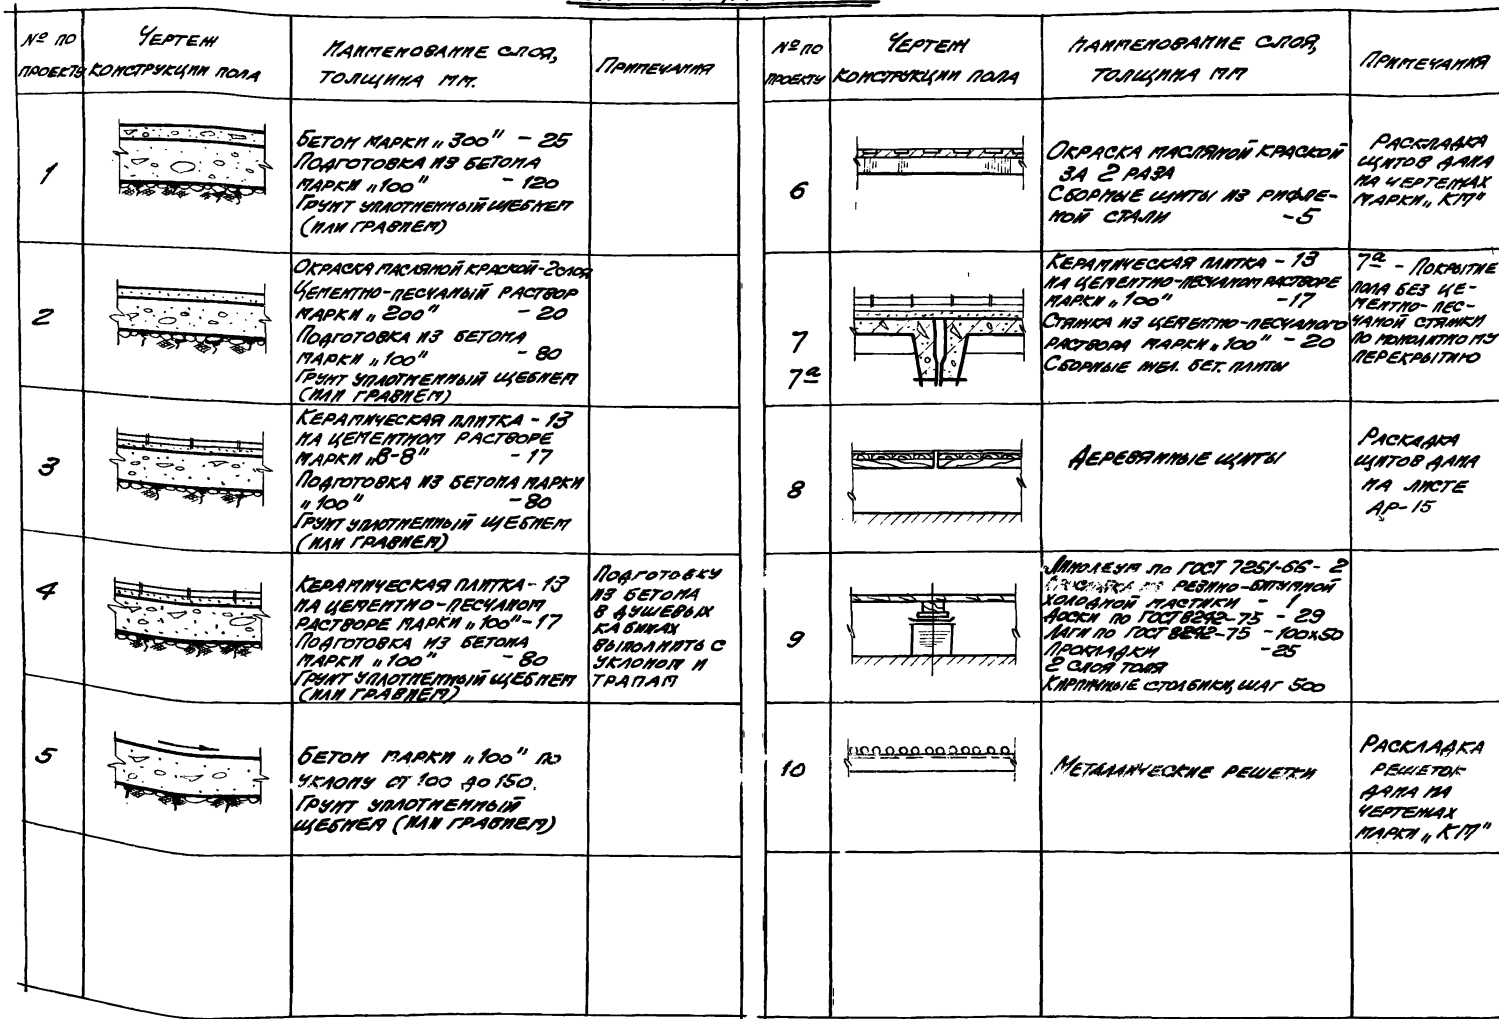 № ПО
ПРОЕКТУ
ЧЕРТЕЖ
КОНСТРУКЦИИ ПОЛА
НАИМЕНОВАНИЕ СЛОЯ,
ТОЛЩИНА ММ.
ПРИМЕЧАНИЯ
1
БЕТОН МАРКИ „300" - 25
ПОДГОТОВКА ИЗ БЕТОНА
МАРКИ „100" - 120
ГРУНТ УПЛОТНЕННЫЙ ЩЕБНЕМ
(ИЛИ ГРАВИЕМ)
2
ОКРАСКА МАСЛЯНОЙ КРАСКОЙ-2СЛОЯ
ЦЕМЕНТНО-ПЕСЧАНЫЙ РАСТВОР
МАРКИ „200" - 20
ПОДГОТОВКА ИЗ БЕТОНА
МАРКИ „100" - 80
ГРУНТ УПЛОТНЕННЫЙ ЩЕБНЕМ
(ИЛИ ГРАВИЕМ)
3
КЕРАМИЧЕСКАЯ ПЛИТКА - 13
НА ЦЕМЕНТНОМ РАСТВОРЕ
МАРКИ „В-8" - 17
ПОДГОТОВКА ИЗ БЕТОНА МАРКИ
„100" - 80
ГРУНТ УПЛОТНЕННЫЙ ЩЕБНЕМ
(ИЛИ ГРАВИЕМ)
4
КЕРАМИЧЕСКАЯ ПЛИТКА - 13
НА ЦЕМЕНТНО-ПЕСЧАНОМ
РАСТВОРЕ МАРКИ „100"-17
ПОДГОТОВКА ИЗ БЕТОНА
МАРКИ „100" - 80
ГРУНТ УПЛОТНЕННЫЙ ЩЕБНЕМ
(ИЛИ ГРАВИЕМ)
ПОДГОТОВКУ
ИЗ БЕТОНА
В ДУШЕВЫХ
КАБИНАХ
ВЫПОЛНИТЬ С
УКЛОНОМ И
ТРАПАМ
5
БЕТОН МАРКИ „100" ПО
УКЛОНУ ОТ 100 ДО 150.
ГРУНТ УПЛОТНЕННЫЙ
ЩЕБНЕМ (ИЛИ ГРАВИЕМ)
№ ПО
ПРОЕКТУ
ЧЕРТЕЖ
КОНСТРУКЦИИ ПОЛА
НАИМЕНОВАНИЕ СЛОЯ,
ТОЛЩИНА ММ
ПРИМЕЧАНИЯ
6
ОКРАСКА МАСЛЯНОЙ КРАСКОЙ
ЗА 2 РАЗА
СБОРНЫЕ ЩИТЫ ИЗ РИФЛЕ-
НОЙ СТАЛИ - 5
РАСКЛАДКА
ЩИТОВ ДАНА
НА ЧЕРТЕЖАХ
МАРКИ „КМ"
7
7а
КЕРАМИЧЕСКАЯ ПЛИТКА - 13
НА ЦЕМЕНТНО-ПЕСЧАНОМ РАСТВОРЕ
МАРКИ „100" - 17
СТЯЖКА ИЗ ЦЕМЕНТНО-ПЕСЧАНОГО
РАСТВОРА МАРКИ „100" - 20
СБОРНЫЕ ЖЕЛ. БЕТ. ПЛИТЫ
7а - ПОКРЫТИЕ
ПОЛА БЕЗ ЦЕ-
МЕНТНО-ПЕС-
ЧАНОЙ СТЯЖКИ
ПО МОНОЛИТНОМУ
ПЕРЕКРЫТИЮ
8
ДЕРЕВЯННЫЕ ЩИТЫ
РАСКАДКА
ЩИТОВ ДАНА
НА ЛИСТЕ
АР-15
9
ЛИНОЛЕУМ ПО ГОСТ 7251-66 - 2
РЕЗИНО-БИТУМНОЙ
ХОЛОДНОЙ МАСТИКИ - 1
ДОСКИ ПО ГОСТ 8242-75 - 29
ЛАГИ ПО ГОСТ 8242-75 - 100х50
ПРОКЛАДКИ - 25
2 СЛОЯ ТОЛЯ
КИРПИЧНЫЕ СТОЛБИКИ, ШАГ 500
10
МЕТАЛЛИЧЕСКИЕ РЕШЕТКИ
РАСКЛАДКА
РЕШЕТОК
ДАНА НА
ЧЕРТЕЖАХ
МАРКИ „КМ"